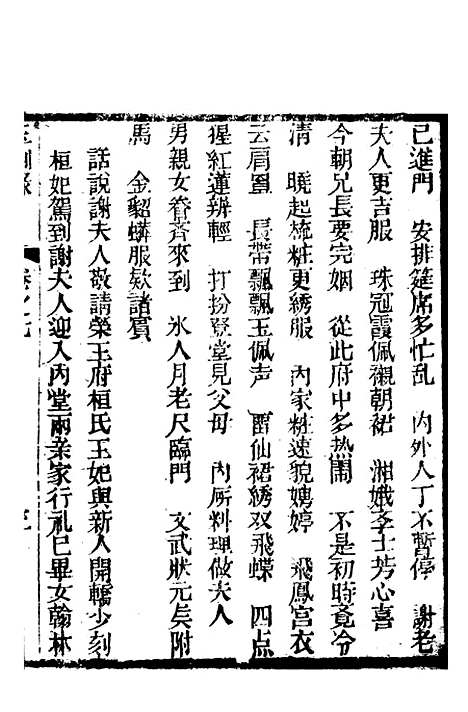 已進門　安排筵席多忙乱　內外人丁不暫停　謝老
夫人更吉服　珠冠霞佩襯朝裙　湘娥李士芳心喜
今朝兄長要完姻　從此府中多熱鬧　不是初時竟冷
清　曉起梳粧更綉服　內家粧速貌娉婷　飛鳳宮衣
云肩罩　長帶飄飄玉佩声　留仙裙綉双飛蝶　四点
猩紅蓮辨輕　打扮登堂見父母　內所料理做夫人
男親女眷齊來到　氷人月老尺臨門　文武狀元矣附
馬　金貂蟒服欵諸賔
話說謝夫人敬請榮王府桓氏王妃與新人開轎少刻
桓妃駕到謝夫人迎入內堂兩亲家行礼已畢女翰林
卷之七